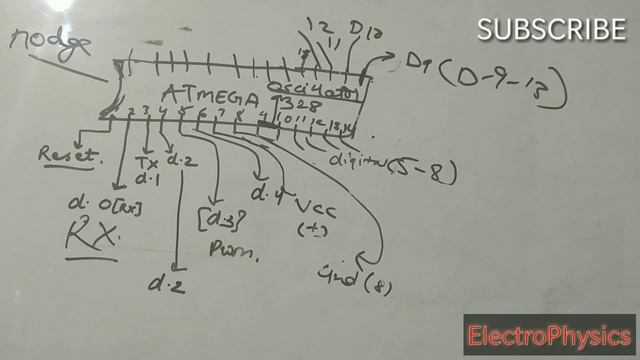 SUBSCRIBE
nodge
12
11
D10
D9 (D-9-13)
oscillator
ATMEGA 328
2 3 4 5 6 7 8 9 10 11 12 13 14
Reset.
TX
d.1
d.2
digital (5-8)
d.0[RX]
RX.
[d.3]
Pwm.
d.4
VCC
(+)
d.2
Gnd (8)
ElectroPhysics